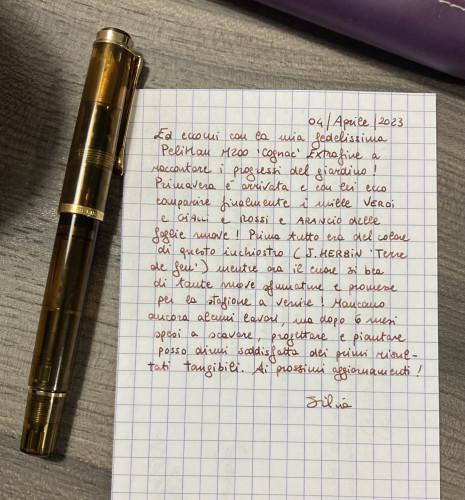 04/Aprile/2023
Ed eccomi con la mia fedelissima
Pelikan M200 'Cognac' Extrafine a
raccontare i progressi del giardino!
Primavera è arrivata e con lei ecco
comparire finalmente i mille VERDI
e GIALLI e ROSSI e ARANCIO delle
foglie nuove! Prima tutto era del colore
di questo inchiostro (J. HERBIN 'Terre
de feu') mentre ora il cuore si bea
di tante nuove sfumature e promesse
per la stagione a venire! Mancano
ancora alcuni lavori, ma dopo 6 mesi
spesi a scavare, progettare e piantare
posso dirmi soddisfatta dei primi risul-
tati tangibili. Ai prossimi aggiornamenti!
Silvia